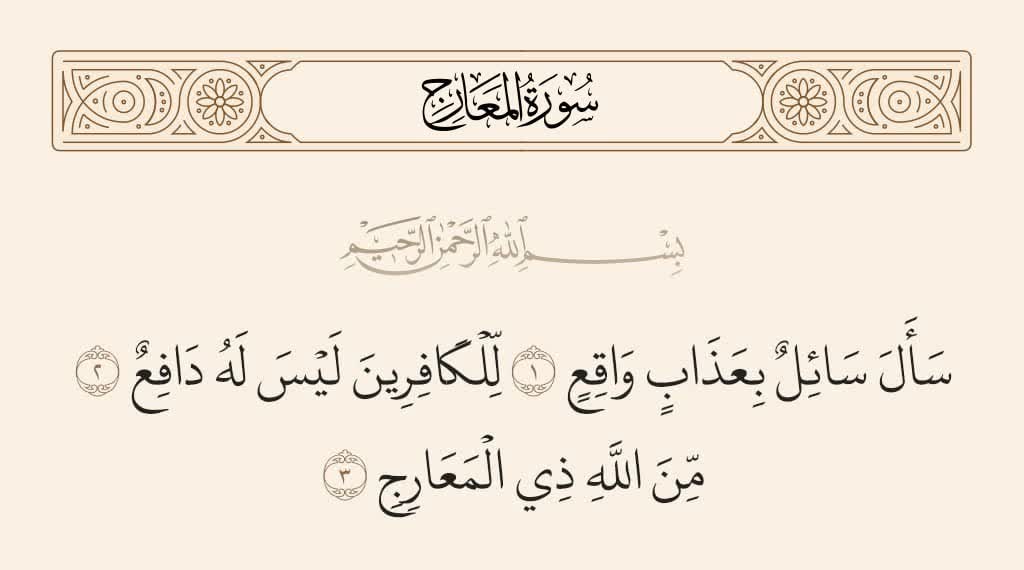 سُورَةُ المَعَارِجِ
بِسْمِ ٱللَّهِ ٱلرَّحْمَٰنِ ٱلرَّحِيمِ
سَأَلَ سَائِلٌ بِعَذَابٍ وَاقِعٍ ١ لِّلْكَافِرِينَ لَيْسَ لَهُ دَافِعٌ ٢
مِّنَ اللَّهِ ذِي الْمَعَارِجِ ٣